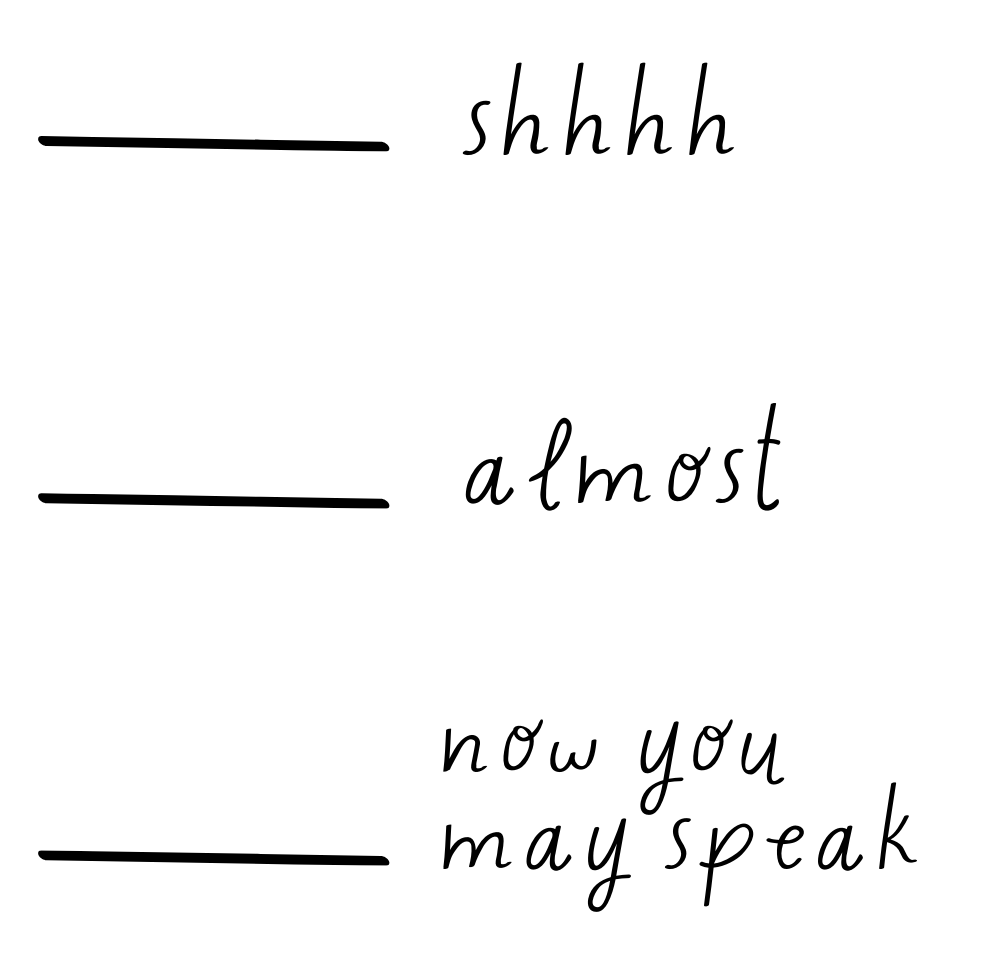 shhhh
almost
now you
may speak